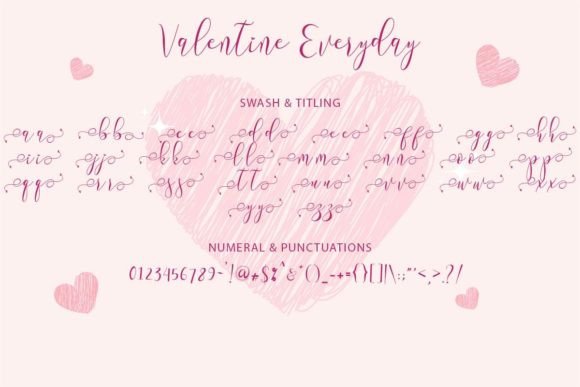 Valentine Everyday
SWASH & TITLING
aa bb cc dd ee ff gg hh
ii jj kk ll mm nn oo pp
qq rr ss tt uu vv ww xx
yy zz
NUMERAL & PUNCTUATIONS
0123456789-'!@+$%^&*()_-+={}[]|\:;"'<,>.?/